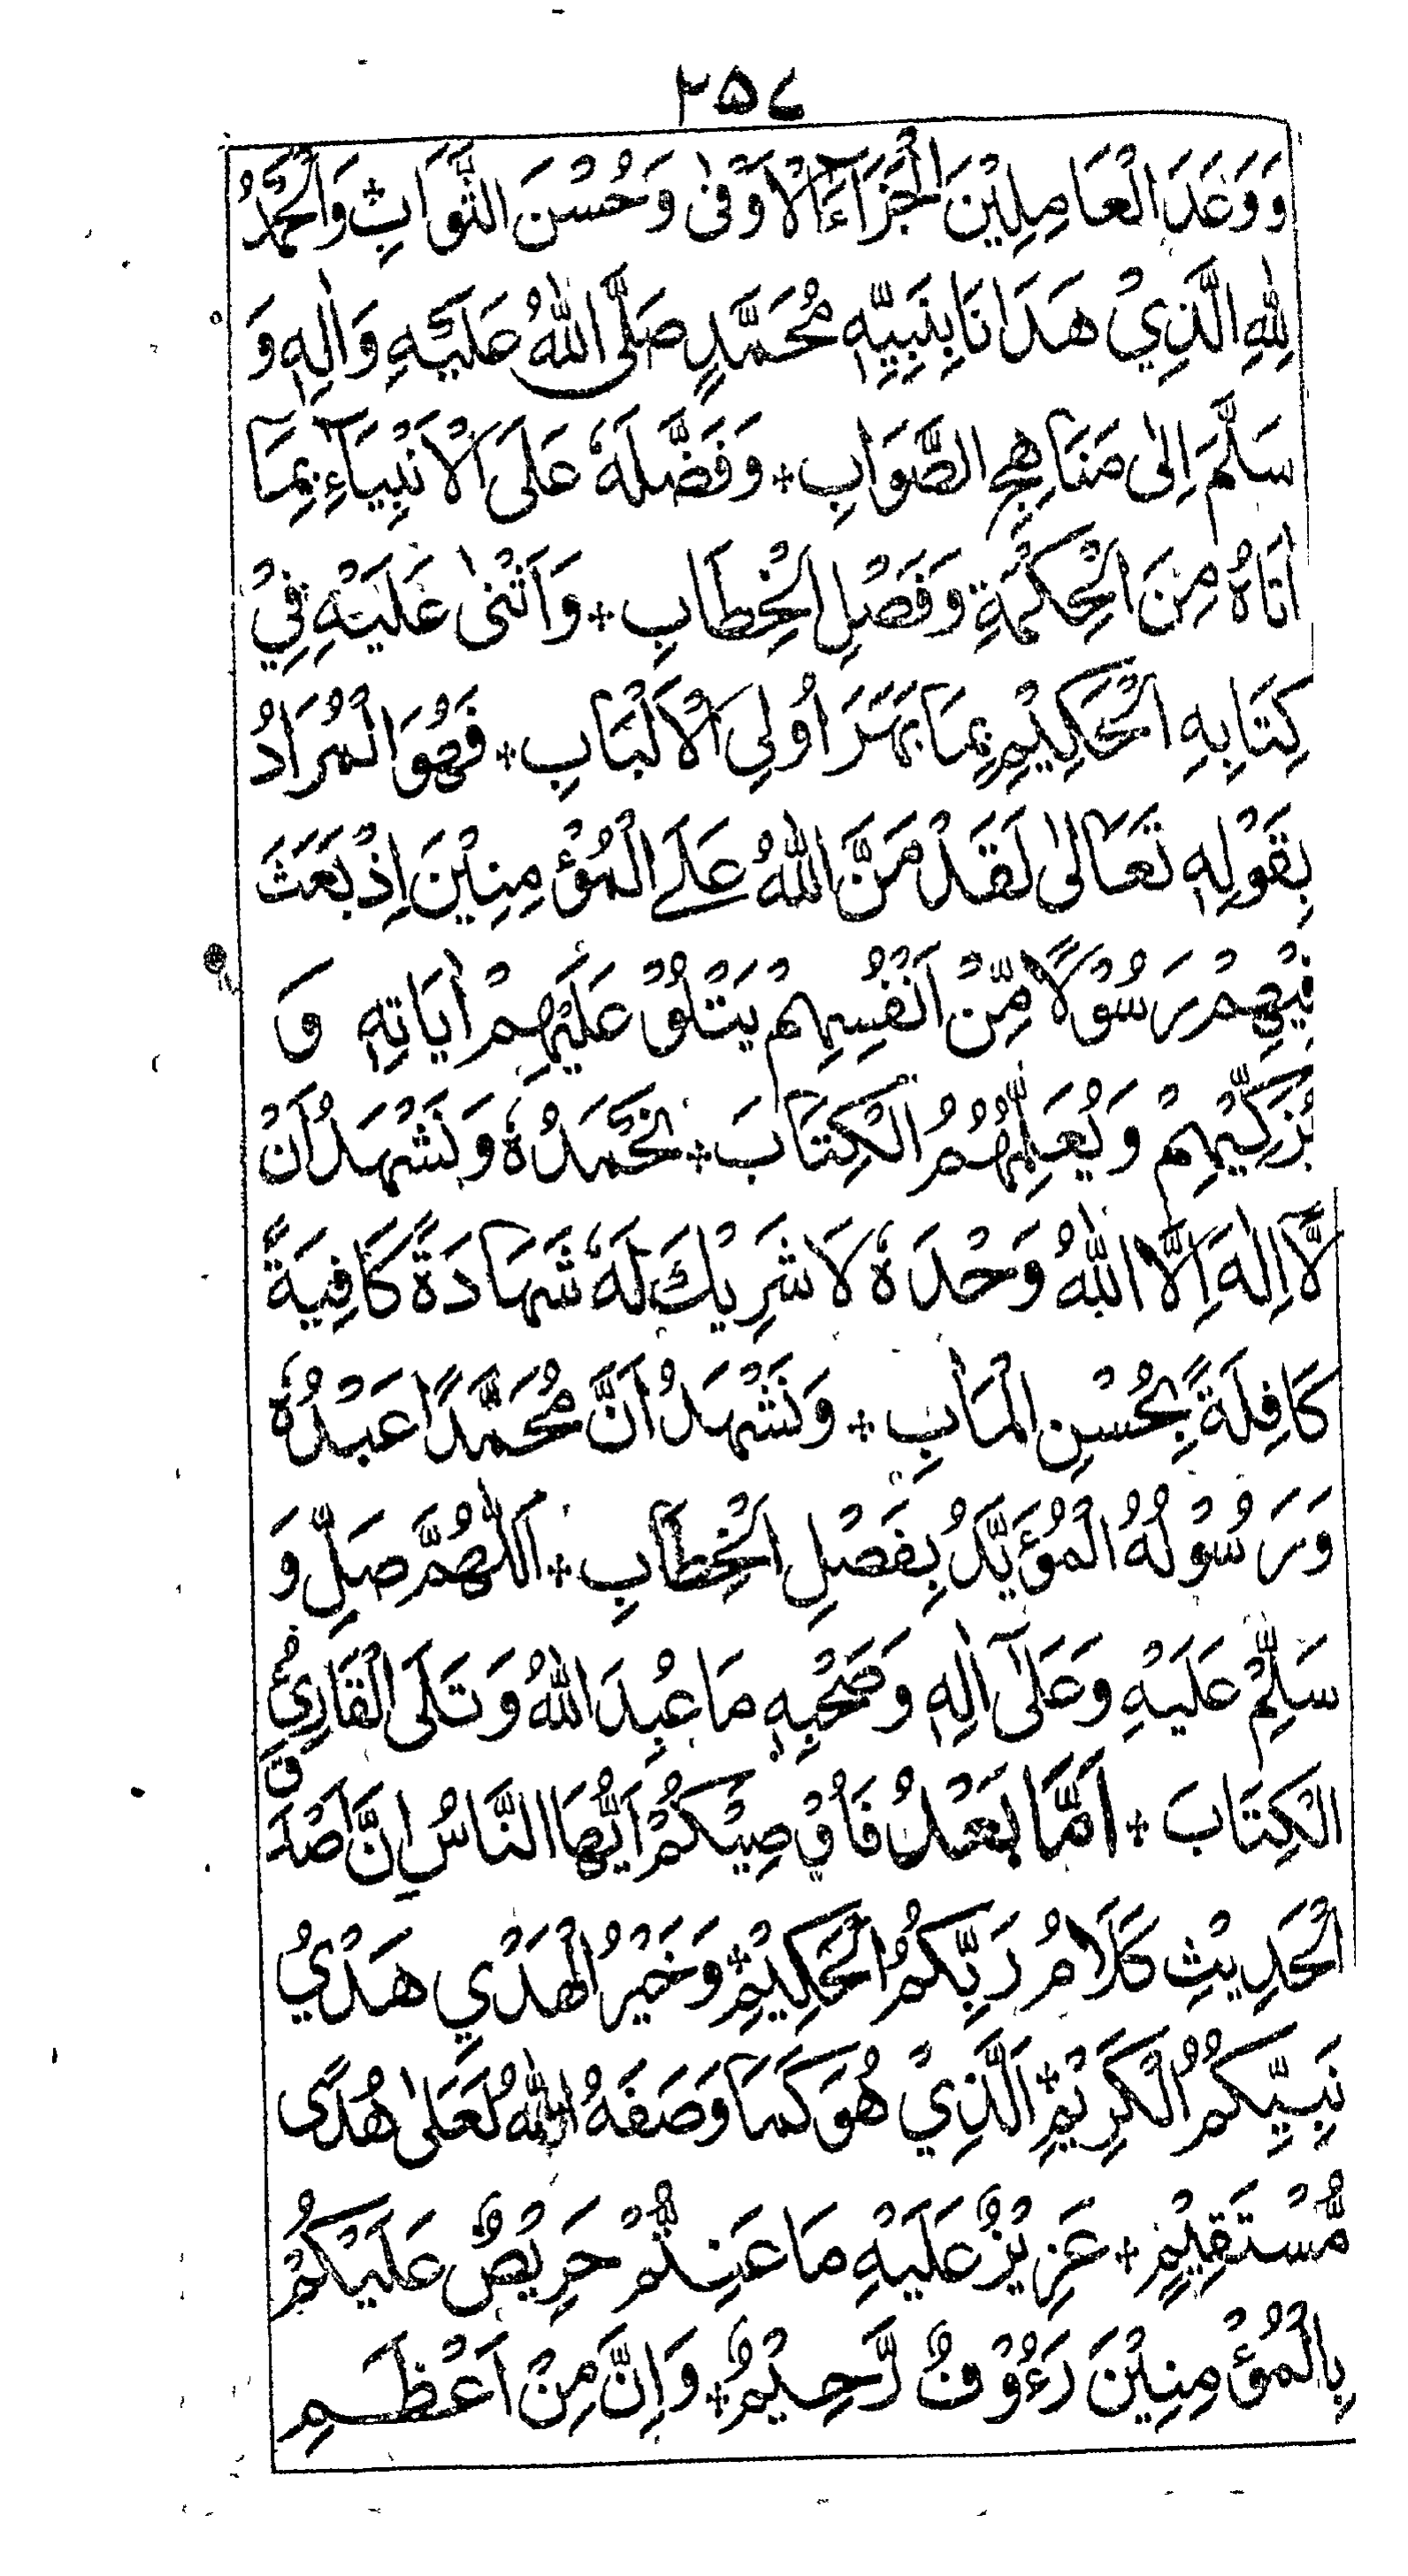 ۲۵۷
وَوَعَدَ الْعَامِلِيْنَ الْجَزَاءَ الْاَوْفٰى وَحُسْنَ الثَّوَابِ ÷ وَالْحَمْدُ
لِلّٰهِ الَّذِيْ هَدَانَا بِنَبِيِّهٖ مُحَمَّدٍ صَلَّى اللّٰهُ عَلَيْهِ وَاٰلِهٖ وَ
سَلَّمَ اِلٰى مَنَاهِجِ الصَّوَابِ ÷ وَفَضَّلَهٗ عَلَى الْاَنْبِيَآءِ بِمَا
اٰتَاهُ مِنَ الْحِكْمَةِ وَفَصْلِ الْخِطَابِ ÷ وَاَثْنٰى عَلَيْهِ فِيْ
كِتَابِهِ الْحَكِيْمِ بِمَا بَهَرَ اُولِى الْاَلْبَابِ ÷ فَهُوَ الْمُرَادُ
بِقَوْلِهٖ تَعَالٰى لَقَدْ مَنَّ اللّٰهُ عَلَے الْمُؤْمِنِيْنَ اِذْ بَعَثَ
فِيْهِمْ رَسُوْلًا مِّنْ اَنْفُسِهِمْ يَتْلُوْ عَلَيْهِمْ اٰيَاتِهٖ وَ
يُزَكِّيْهِمْ وَيُعَلِّمُهُمُ الْكِتَابَ ÷ نَحْمَدُهٗ وَنَشْهَدُ اَنْ
لَّا اِلٰهَ اِلَّا اللّٰهُ وَحْدَهٗ لَا شَرِيْكَ لَهٗ شَهَادَةً كَافِيَةً
كَافِلَةً بِحُسْنِ الْمَاٰبِ ÷ وَنَشْهَدُ اَنَّ مُحَمَّدًا عَبْدُهٗ
وَرَسُوْلُهُ الْمُؤَيَّدُ بِفَصْلِ الْخِطَابِ ÷ اَللّٰهُمَّ صَلِّ وَ
سَلِّمْ عَلَيْهِ وَعَلٰى اٰلِهٖ وَصَحْبِهٖ مَا عُبِدَ اللّٰهُ وَتَلَى الْقَارِئُ
الْكِتَابَ ÷ اَمَّا بَعْدُ فَاُوْصِيْكُمْ اَيُّهَا النَّاسُ اِنَّ اَصْدَقَ
الْحَدِيْثِ كَلَامُ رَبِّكُمُ الْحَكِيْمِ ÷ وَخَيْرُ الْهَدْيِ هَدْيُ
نَبِيِّكُمُ الْكَرِيْمِ ÷ اَلَّذِيْ هُوَ كَمَا وَصَفَهُ اللّٰهُ لَعَلٰى هُدًى
مُّسْتَقِيْمٍ ÷ عَزِيْزٌ عَلَيْهِ مَا عَنِتُّمْ حَرِيْصٌ عَلَيْكُمْ
بِالْمُؤْمِنِيْنَ رَءُوْفٌ رَّحِيْمٌ ÷ وَاِنَّ مِنْ اَعْظَمِ